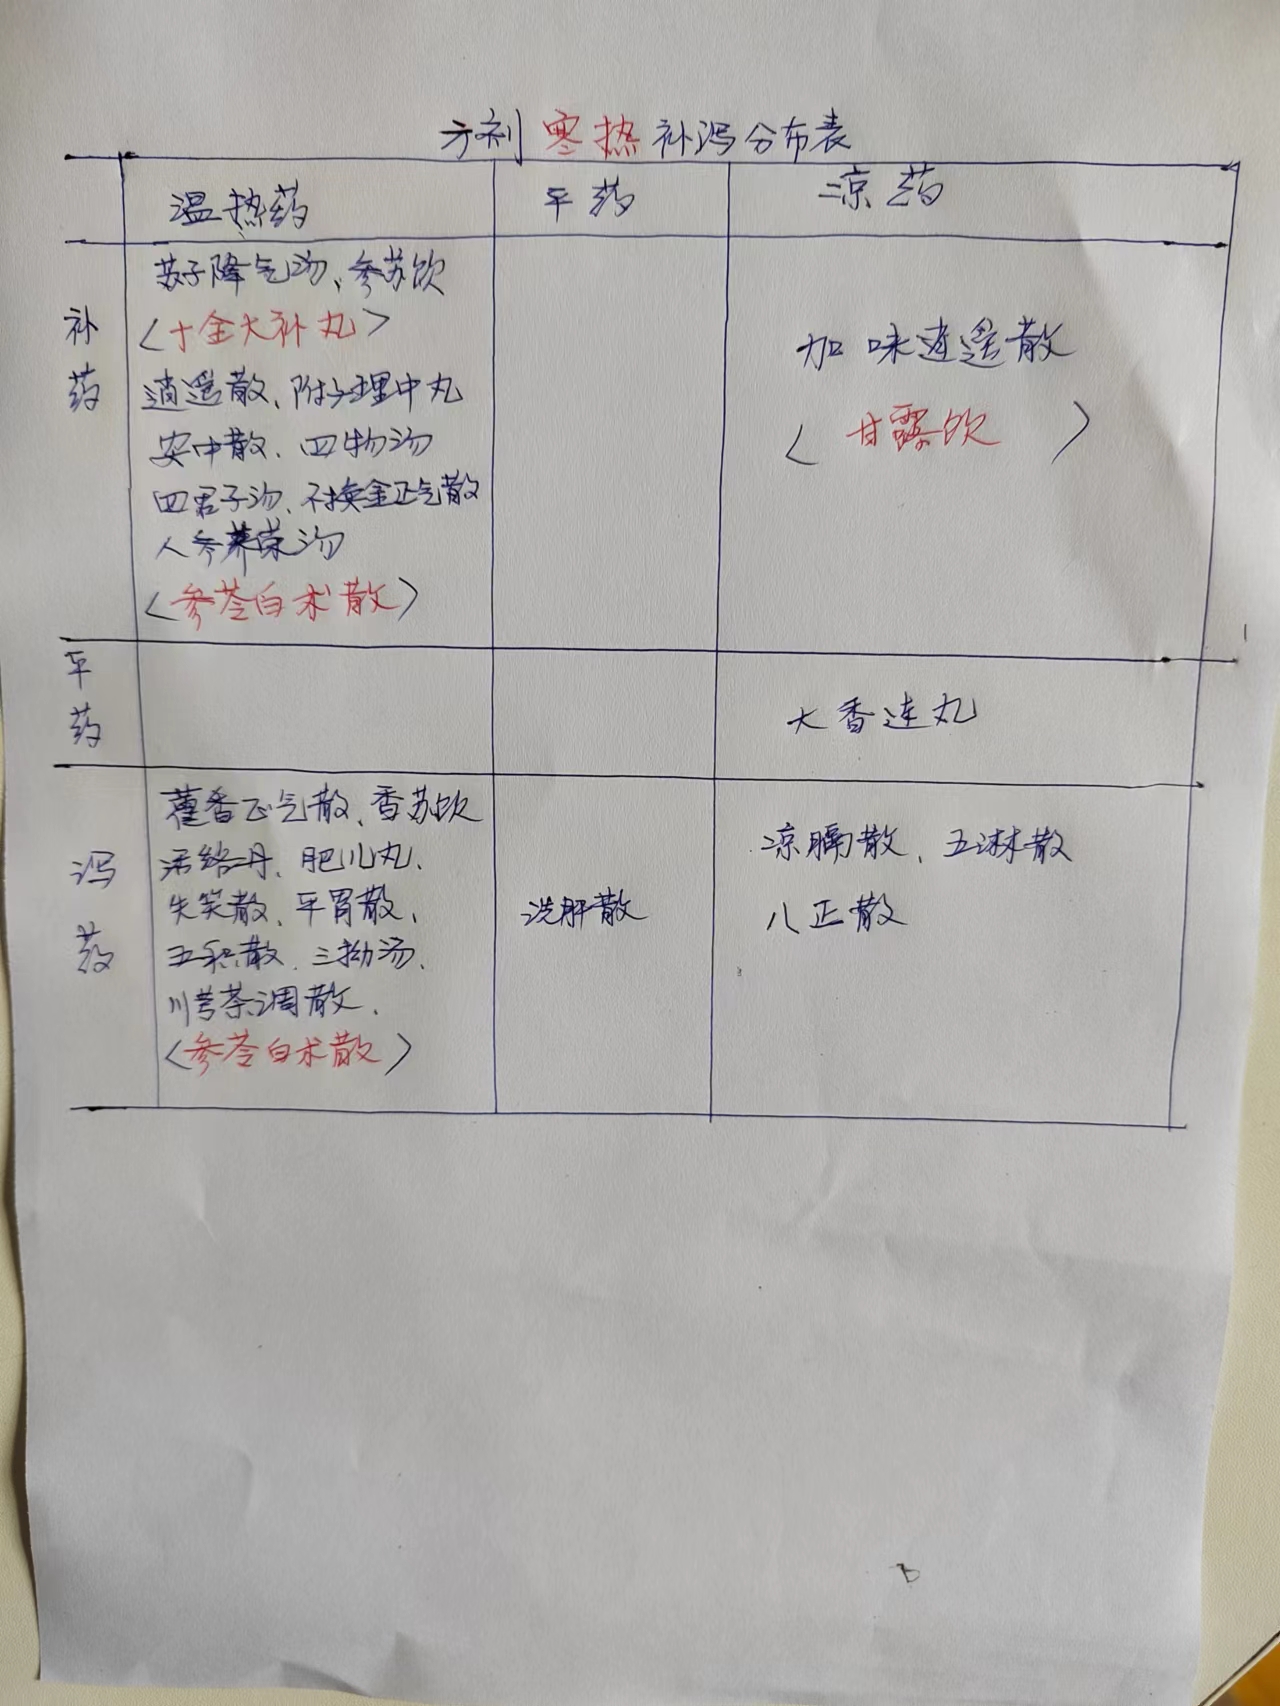 方剂寒热补泻分布表
温热药 平药 凉药
补药
苏子降气汤、参苏饮
<十全大补丸>
逍遥散、附子理中丸
安中散、四物汤
四君子汤、不换金正气散
人参养荣汤
<参苓白术散>
加味逍遥散
<甘露饮>
平药
大香连丸
泻药
藿香正气散、香苏饮
活络丹、肥儿丸、
失笑散、平胃散、
五积散、三拗汤、
川芎茶调散、
<参苓白术散>
洗肝散
凉膈散、五淋散
八正散